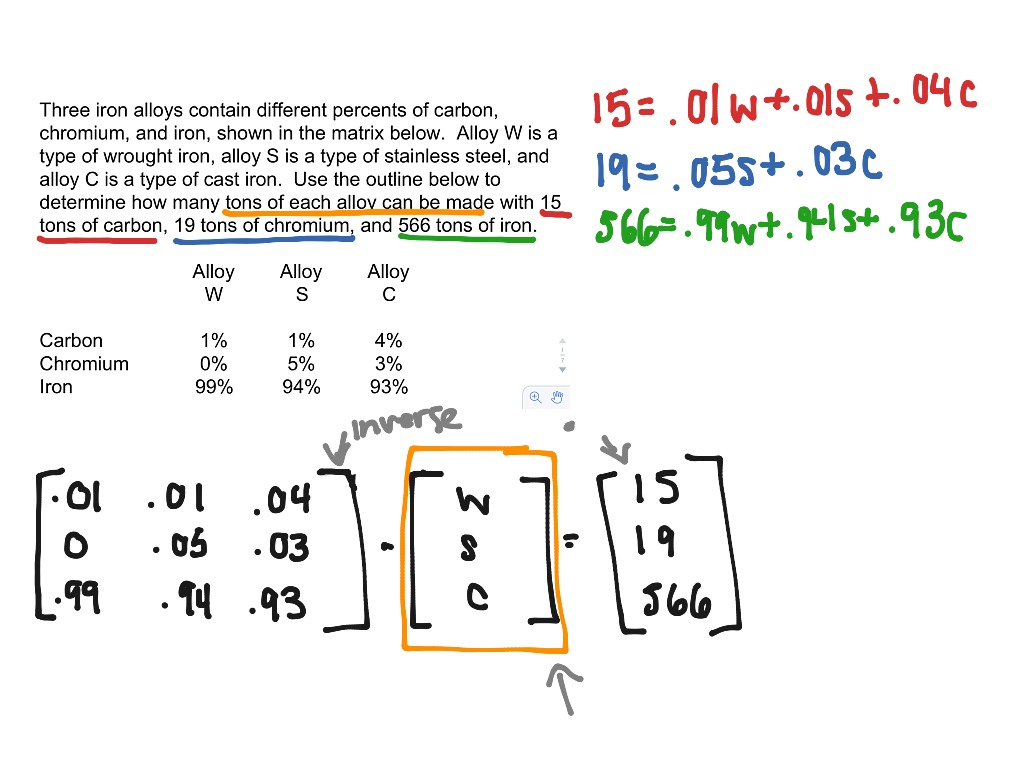 Three iron alloys contain different percents of carbon,
chromium, and iron, shown in the matrix below. Alloy W is a
type of wrought iron, alloy S is a type of stainless steel, and
alloy C is a type of cast iron. Use the outline below to
determine how many tons of each alloy can be made with 15
tons of carbon, 19 tons of chromium, and 566 tons of iron.
15 = .01w + .01s + .04c
19 = .05s + .03c
566 = .99w + .94s + .93c
Alloy Alloy Alloy
W S C
Carbon 1% 1% 4%
Chromium 0% 5% 3%
Iron 99% 94% 93%
inverse
.01 .01 .04 W 15
0 .05 .03 · S = 19
.99 .94 .93 C 566